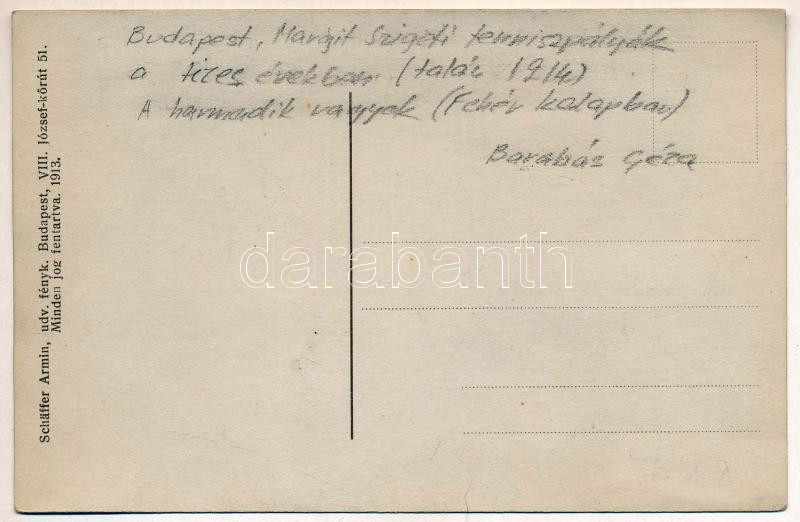 Budapest, Margit Szigeti teniszpályák
a tizes években (talán 1914)
A harmadik vagyok (Fehér kalapban)
Barabás Géza
Schäffer Armin, udv. fényk. Budapest, VIII. József-körút 51.
Minden jog fentartva. 1913.
darabanth